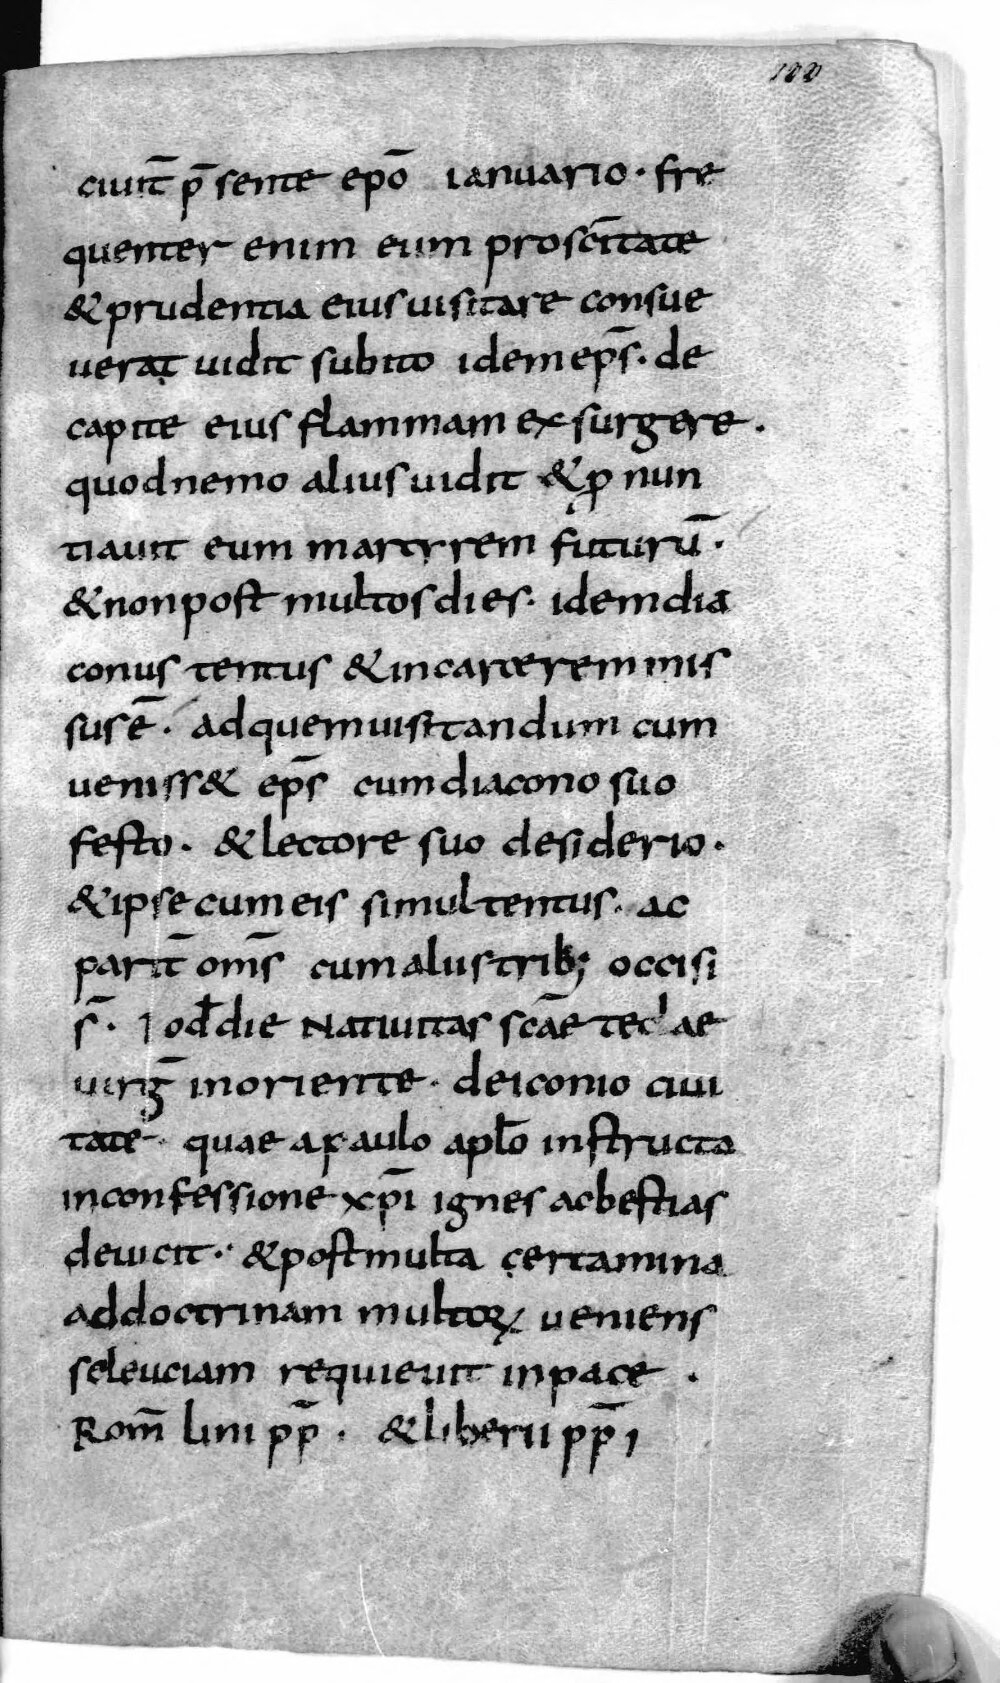 100
ciuit̄ p̄sente ep̄o ianuario · fre
quenter enim eum pro sc̄itate
& prudentia eius uisitare consue
uerat uidit subito idem ep̄s · de
capite eius flammam exsurgere ·
quod nemo alius uidit & ꝓnun
tiauit eum martyrem futurū ·
& non post multos dies · idem dia
conus tentus & in carcerem mis
sus ē · ad quem uisitandum cum
ueniss& ep̄s cum diacono suo
festo · & lectore suo desiderio ·
& ipse cum eis simul tentus · ac
parit̄ om̄s cum aliis trib; occisi
s̄ · eod̄ die Natiuitas sc̄ae teclae
uirḡ in oriente · de iconio ciui
tate · quae a paulo apl̄o instructa
in confessione xp̄i ignes ac bestias
deuicit · & post multa certamina
ad doctrinam multoꝝ ueniens
seleuciam requieuit in pace ·
Rom̄ lini pp̄ · & liberii pp̄